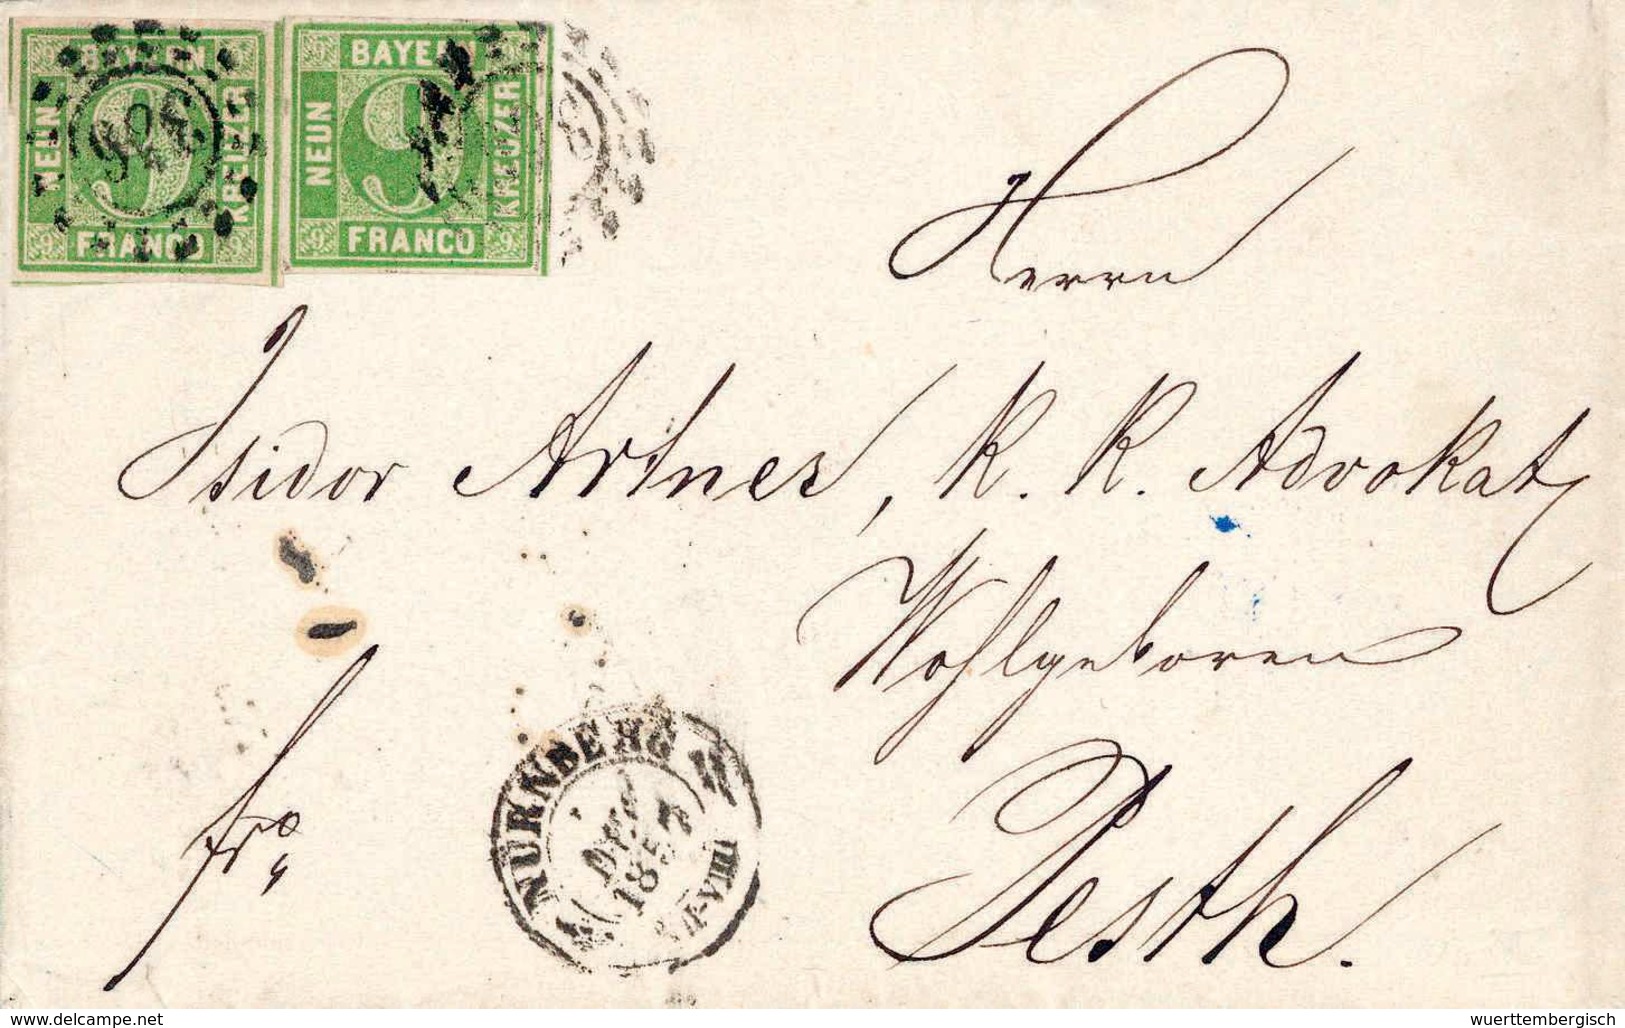 9 BAYERN 9
NEUN 9 KREUZER
9 FRANCO 9
9 BAYERN 9
NEUN 9 KREUZER
9 FRANCO 9
Herrn
Isidor Artner, K. K. Advokat
Wohlgeboren
fro
Pesth.
NÜRNBERG
1857
www.delcampe.net
wuerttembergisch